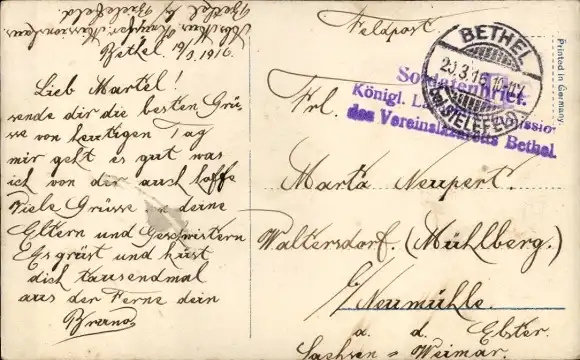 Bethel, 19/3. 1916.
Lieb Martel!
sende dir die besten Grü-
sse von heutigen Tag
mir geht es gut was
ich von dir auch hoffe
Viele Grüsse an deine
Eltern und Geschwistern
Es grüst und küst
dich tausendmal
aus der Ferne dein
Feldpost
BETHEL
23.3.16
bei BIELEFELD
Soldatenbrief.
Königl.
des Vereinslazaretts Bethel.
Frl.
Marta Neupert.
Waltersdorf. (Mühlberg.)
b/ Neumühle.
a. d. Elster.
Sachsen = Weimar.
Printed in Germany.